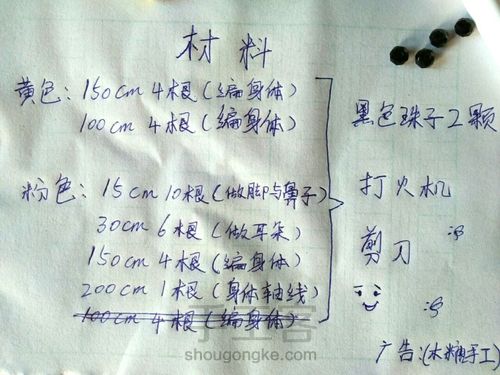 材料
黄色：150cm 4根（编身体）
100cm 4根（编身体）
粉色：15cm 10根（做脚与鼻子）
30cm 6根（做耳朵）
150cm 4根（编身体）
200cm 1根（身体轴线）
100cm 4根（编身体）
黑色珠子2颗
打火机
剪刀
广告：（木糖手工）
手工客
shougongke.com